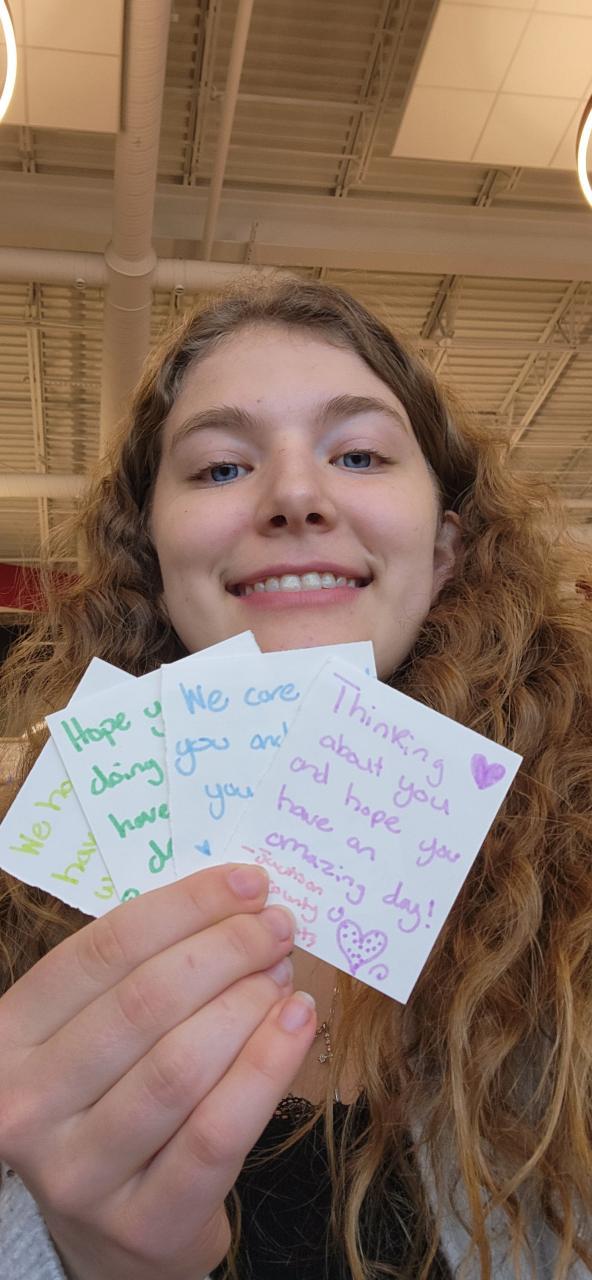 We
hav
Hope y
doing
have
da
We care
you and
you
Thinking
about you
and hope you
have an
amazing day!
-Jackson
County